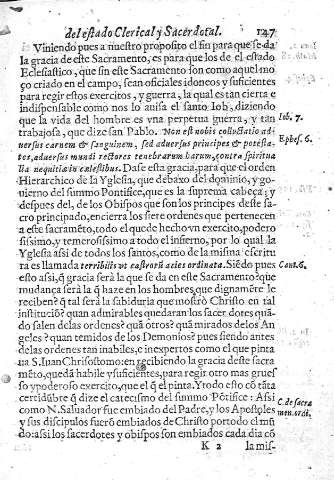 del estado Clerical y Sacerdotal. 147
Viniendo pues a nuestro proposito el fin para que se da
la gracia de este Sacramento, es para que los de el estado
Eclesiastico, que sin este Sacramento son como aquel mo
ço criado en el campo, sean oficiales idoneos y suficientes
para regir estos exercitos, y guerra, la qual es tan cierta e
indispensable como nos lo auisa el santo Iob, diziendo
que la vida del hombre es vna perpetua guerra, y tan
Iob. 7.
trabajosa, que dize san Pablo. Non est nobis colluctatio ad
uersus carnem & sanguinem, sed aduersus principes & potesta
Ephes. 6.
tes, aduersus mundi rectores tenebrarum harum, contra spiritua
lia nequitiæ in cælestibus. Dase esta gracia, para que el orden
Hierarchico de la Yglesia, que debaxo del dominio, y go-
uierno del summo Pontifice, que es la suprema cabeça; y
despues del, de los Obispos que son los principes deste sa-
cro principado, encierra los siete ordenes que pertenecen
a este sacramēto, todo el quede hecho vn exercito, podero
sissimo, y temerosissimo a todo el infierno, por lo qual la
Yglesia assi de todos los santos, como de la misma escritu
ra es llamada terribilis vt castrorū acies ordinata. Siēdo pues
Cant. 6.
esto assi, q̄ gracia serà la que se da en este Sacramento? que
mudança serà la q̄ haze en los hombres, que dignamēte le
reciben? q̄ tal serà la sabiduria que mostrò Christo en tal
institucio? quan admirables quedaran los sacerdotes quā
do salen de las ordenes? quā otros? quā mirados de los An
geles? quan temidos de los Demonios? pues siendo antes
de las ordenes tan inabiles, e inexpertos como el que pinta
na S. Iuan Chrisostomo: en recibiendo la gracia deste sacra
mēto, quedā habile y suficientes, para regir otro mas grues
so y poderoso exercito, que el q̄ el pinta. Y todo esto cō tāta
certidūbre q̄ dize el catecismo del summo Pōtifice: Assi
C. de sacra
como N. Saluador fue embiado del Padre, y los Apostoles
men. ordi.
y sus discipulos fuerō embiados de Christo por todo el mū
do: assi los sacerdotes y obispos son embiados cada dia cō
K 2 la mis-